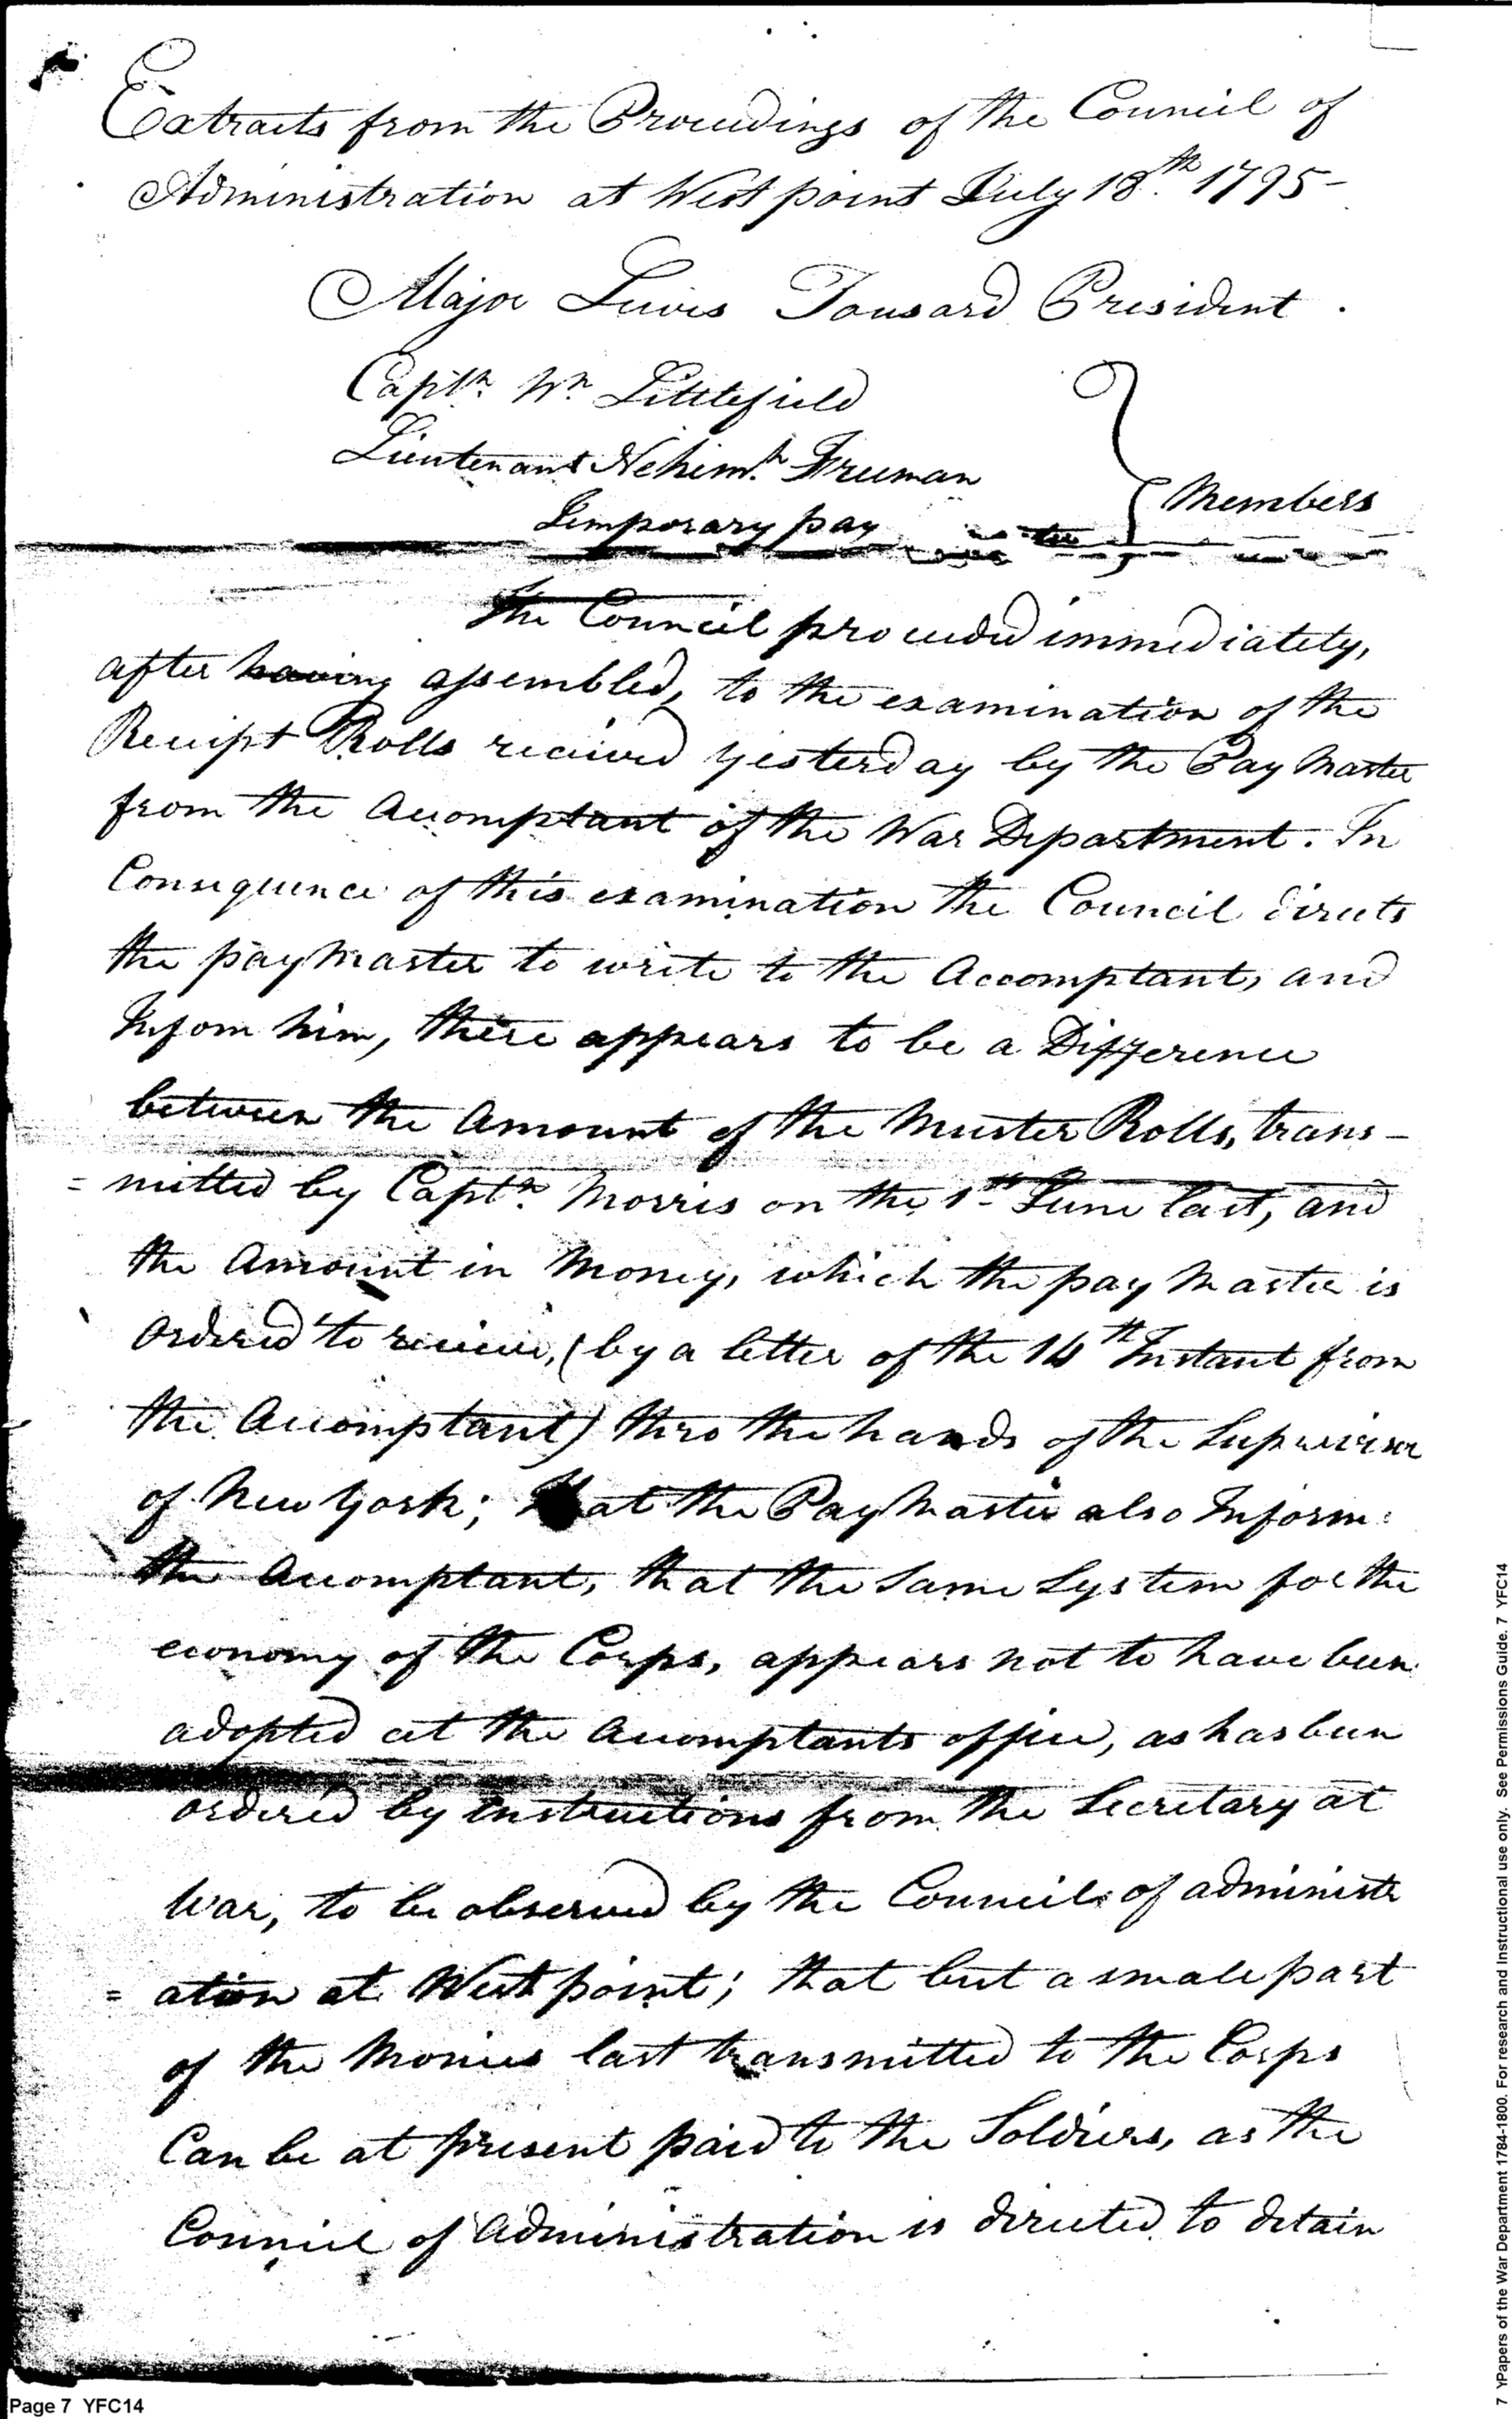 Extracts from the Proceedings of the Council of
Administration at West point July 18.th 1795-
Major Lewis Tousard President.
Capt.n Wm Littlefield
Lieutenant Nehim.h Freeman
Members
Temporary pay
The Council proceeded immediately,
after having assembled, to the examination of the
Receipt Rolls received yesterday by the Pay Master
from the Accomptant of the War Department. In
Consequence of this examination the Council directs
the pay Master to write to the Accomptant, and
Infom him, there appears to be a Difference
between the Amount of the Muster Rolls, trans-
=mitted by Capt.n Morris on the 1st June last, and
the Amount in Money, which the pay Master is
Ordered to receive, (by a letter of the 14th Instant from
the Accomptant) thro the hands of the Supervisor
of New York; that the Pay Master also Inform
the Accomptant, that the Same System for the
economy of the Corps, appears not to have been
adopted at the Accomptants office, as has been
ordered by Instructions from the Secretary at
War, to be observed by the Council of administr
=ation at West point; that but a small part
of the Monies last transmitted to the Corps
Can be at present paid to the Soldiers, as the
Council of Administration is directed to detain
Page 7 YFC14
7 YPapers of the War Department 1784-1800. For research and Instructional use only. See Permissions Guide. 7 YFC14